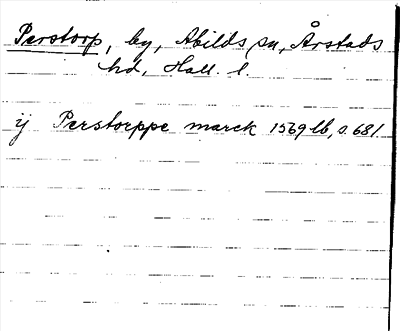 Perstorp, by, Abilds sn, Årstads
hd, Hall. l.
ij Perstorppe marck 1569 lb, s. 681